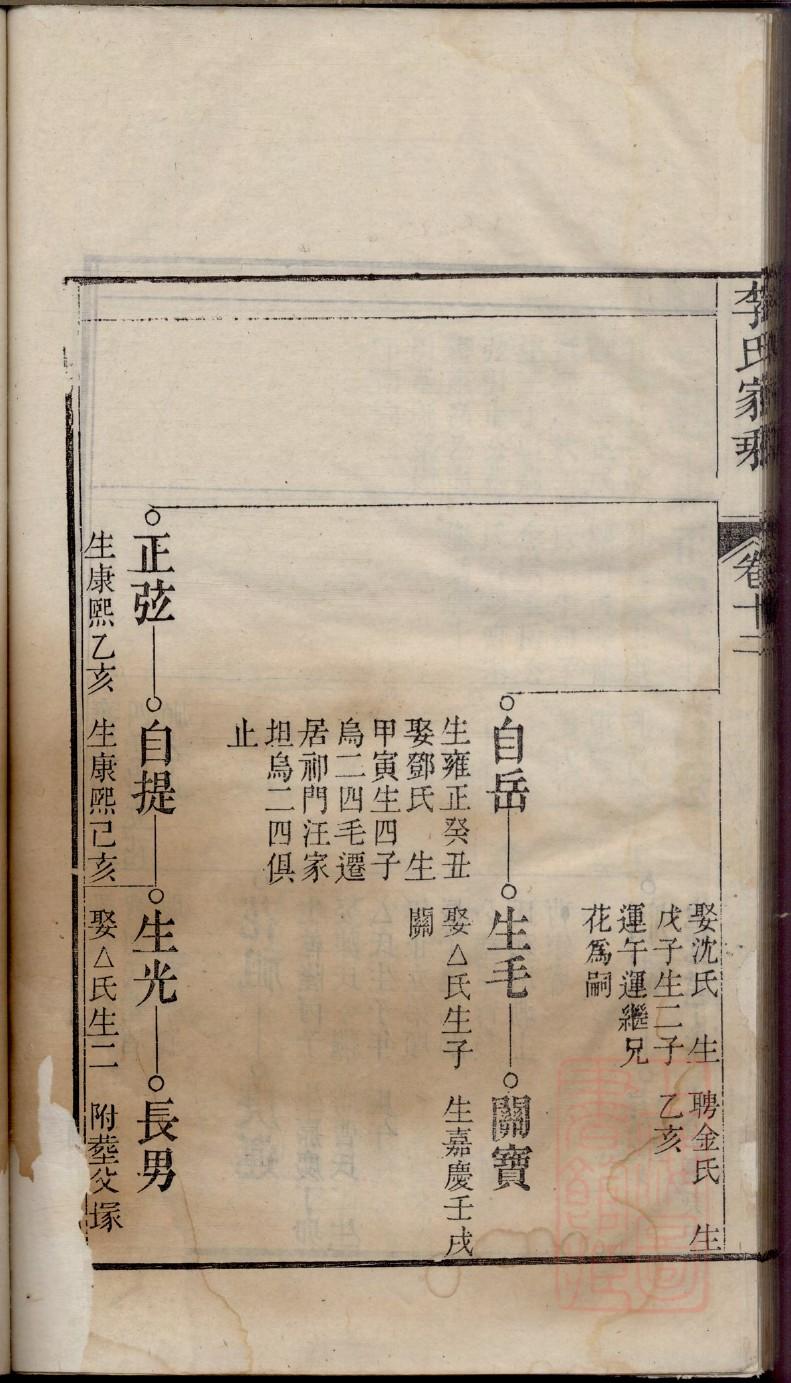 李氏家乘
卷十二
娶沈氏 生
戊子生二子
運午運繼兄
花爲嗣
聘金氏 生
乙亥
自岳
生雍正癸丑
娶鄧氏 生
甲寅生四子
烏二四毛遷
居祁門汪家
坦烏二四俱
止
生毛
娶△氏生子
關
關寶
生嘉慶壬戌
正弦
生康熙乙亥
自提
生康熙己亥
生光
娶△氏生二
長男
附塟父塚